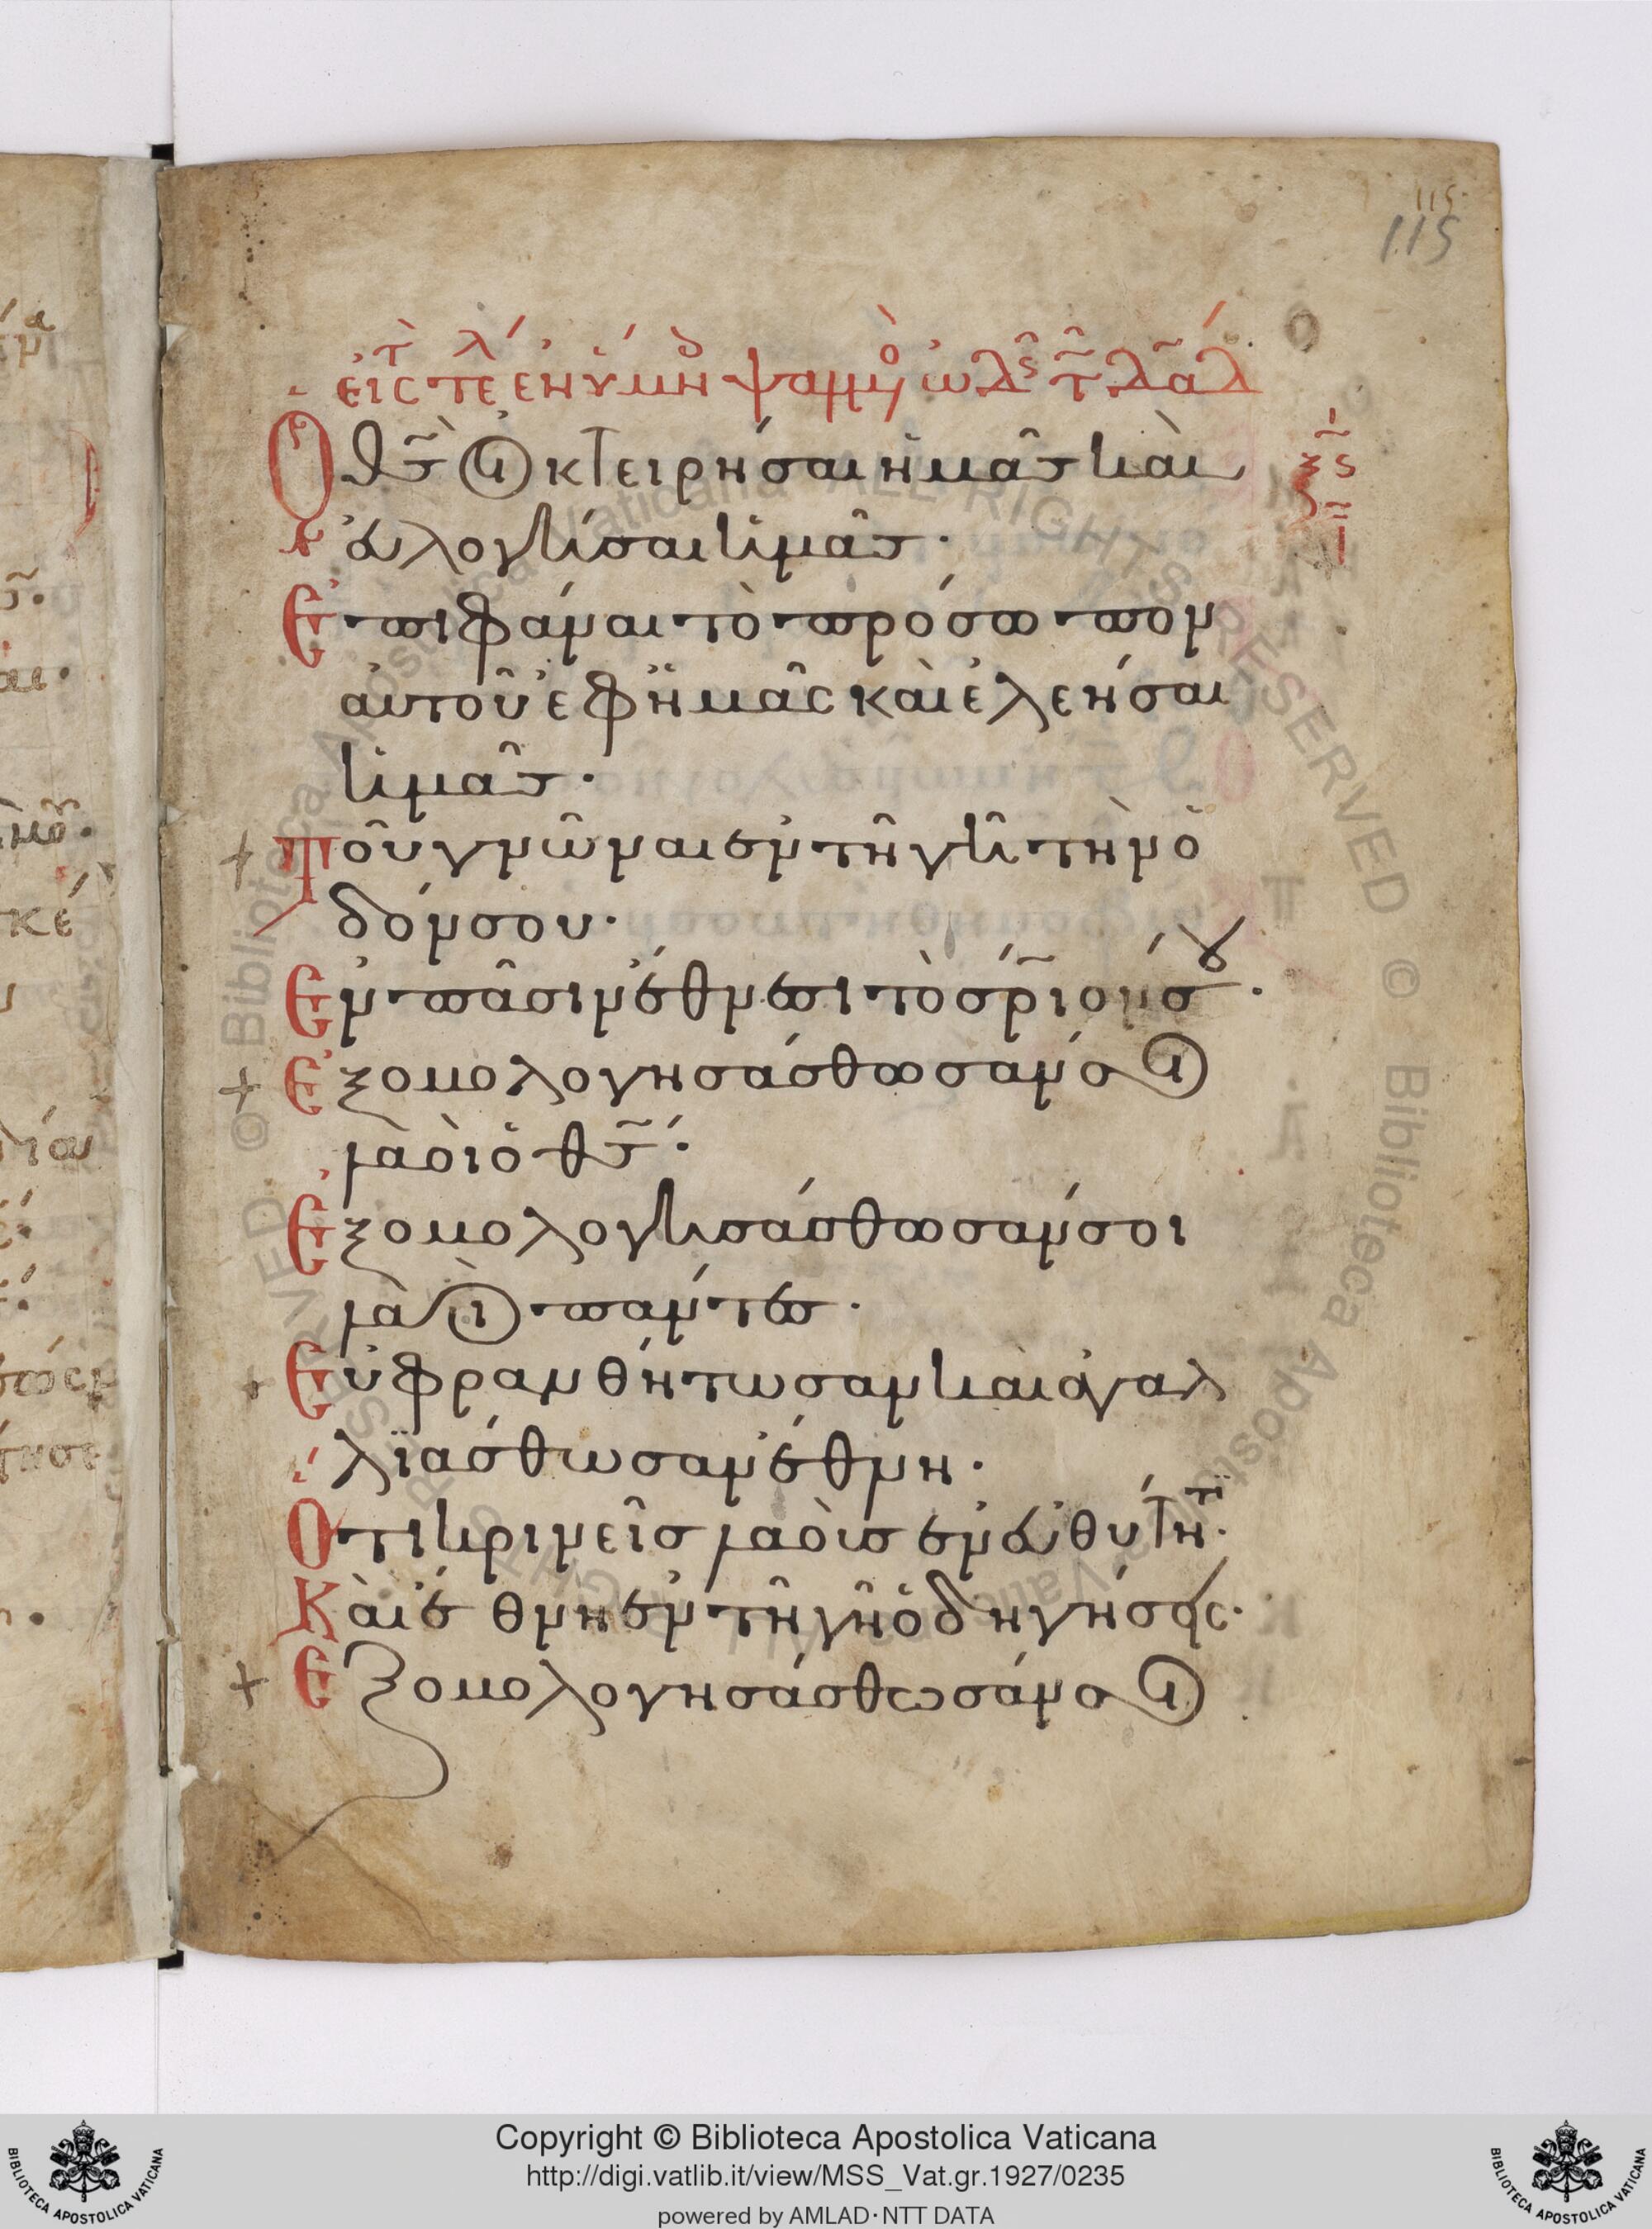 115
115
εἰς τὸ τέλ ἐν ὕμν ψαλμὸ ὠδῆς τ δαδ
Ὁ θς οἰκτειρήσαι ἡμᾶς καὶ
ξς
εὐλογήσαι ἡμᾶς·
Ἐπιφάναι τὸ πρόσωπον
αὐτοῦ ἐφ ἡμᾶς καὶ ἐλεήσαι
ἡμᾶς·
Τοῦ γνῶναι ἐν τῆ γῆ τὴν ὁ
δόν σου·
Ἐν πᾶσιν ἔθνεσι τὸ σριόν σου·
Ἐξομολογησάσθωσάν σοι
λαοὶ ὁ θς·
Ἐξομολογησάσθωσάν σοι
λαοὶ πάντες·
Εὐφρανθήτωσαν καὶ ἀγαλ
λϊασθωσαν ἔθνη·
Ὅτι κρινεῖς λαοὺς ἐν εὐθύτητι·
Καὶ ἔθνη ἐν τῆ γῆ ὁδηγήσεις·
Ἐξομολογησάσθωσάν σοι
Copyright © Biblioteca Apostolica Vaticana
http://digi.vatlib.it/view/MSS_Vat.gr.1927/0235
powered by AMLAD·NTT DATA
BIBLIOTECA APOSTOLICA VATICANA
BIBLIOTECA APOSTOLICA VATICANA